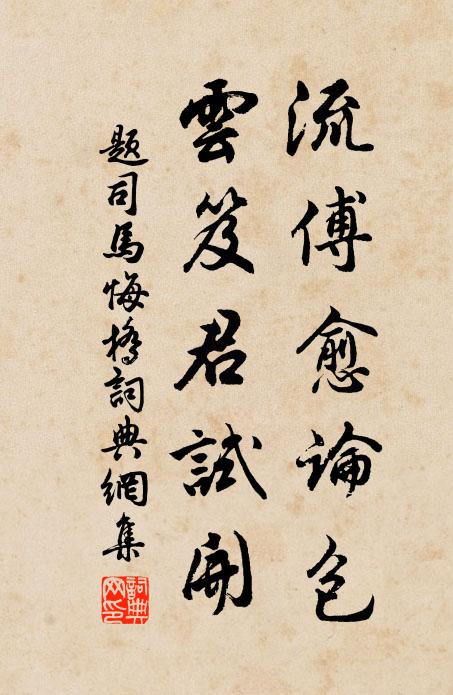 流傅愈論
雲笈君試開
題司馬悔橋詞典網集
詞典
网印